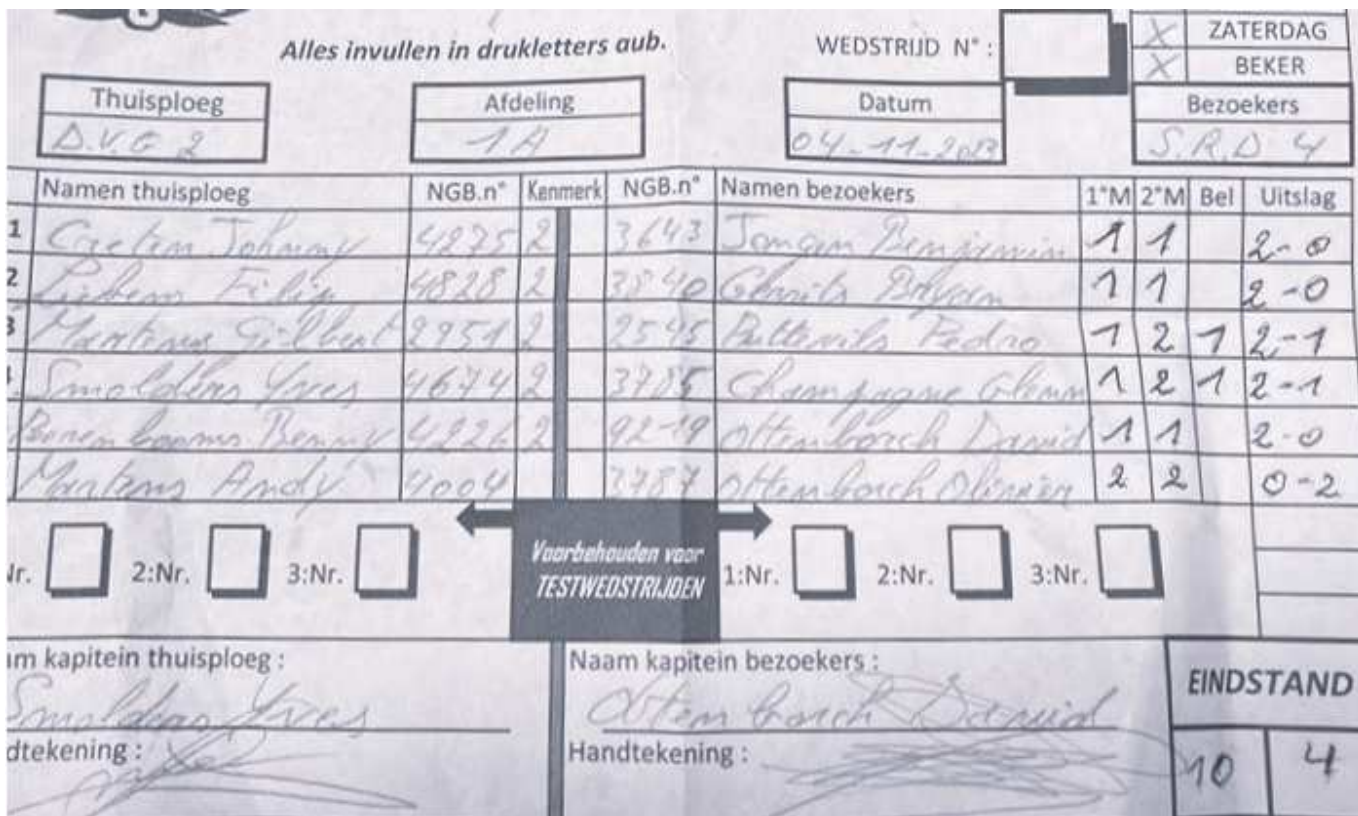 Alles invullen in drukletters aub.
WEDSTRIJD N° :
X ZATERDAG
X BEKER
Thuisploeg
Afdeling
Datum
Bezoekers
D.V.G 2
1A
04-11-2023
S.R.D 4
Namen thuisploeg NGB.n° Kenmerk NGB.n° Namen bezoekers 1°M 2°M Bel Uitslag
1 Johnny 4275 2 3643 Jongen Benjamin 1 1 2-0
2 Filip 4828 2 3840 1 1 2-0
3 Martens Gilbert 2951 2 2545 Pedro 1 2 1 2-1
Smolders Yves 4674 2 3785 Champagne Glenn 1 2 1 2-1
Benny 4226 2 92-19 Ottenborch David 1 1 2-0
Martens Andy 4004 3787 Ottenborch 2 2 0-2
Nr. 2:Nr. 3:Nr.
Voorbehouden voor
TESTWEDSTRIJDEN
1:Nr. 2:Nr. 3:Nr.
am kapitein thuisploeg :
Smolders Yves
dtekening :
Naam kapitein bezoekers :
Ottenborch David
Handtekening :
EINDSTAND
10 4